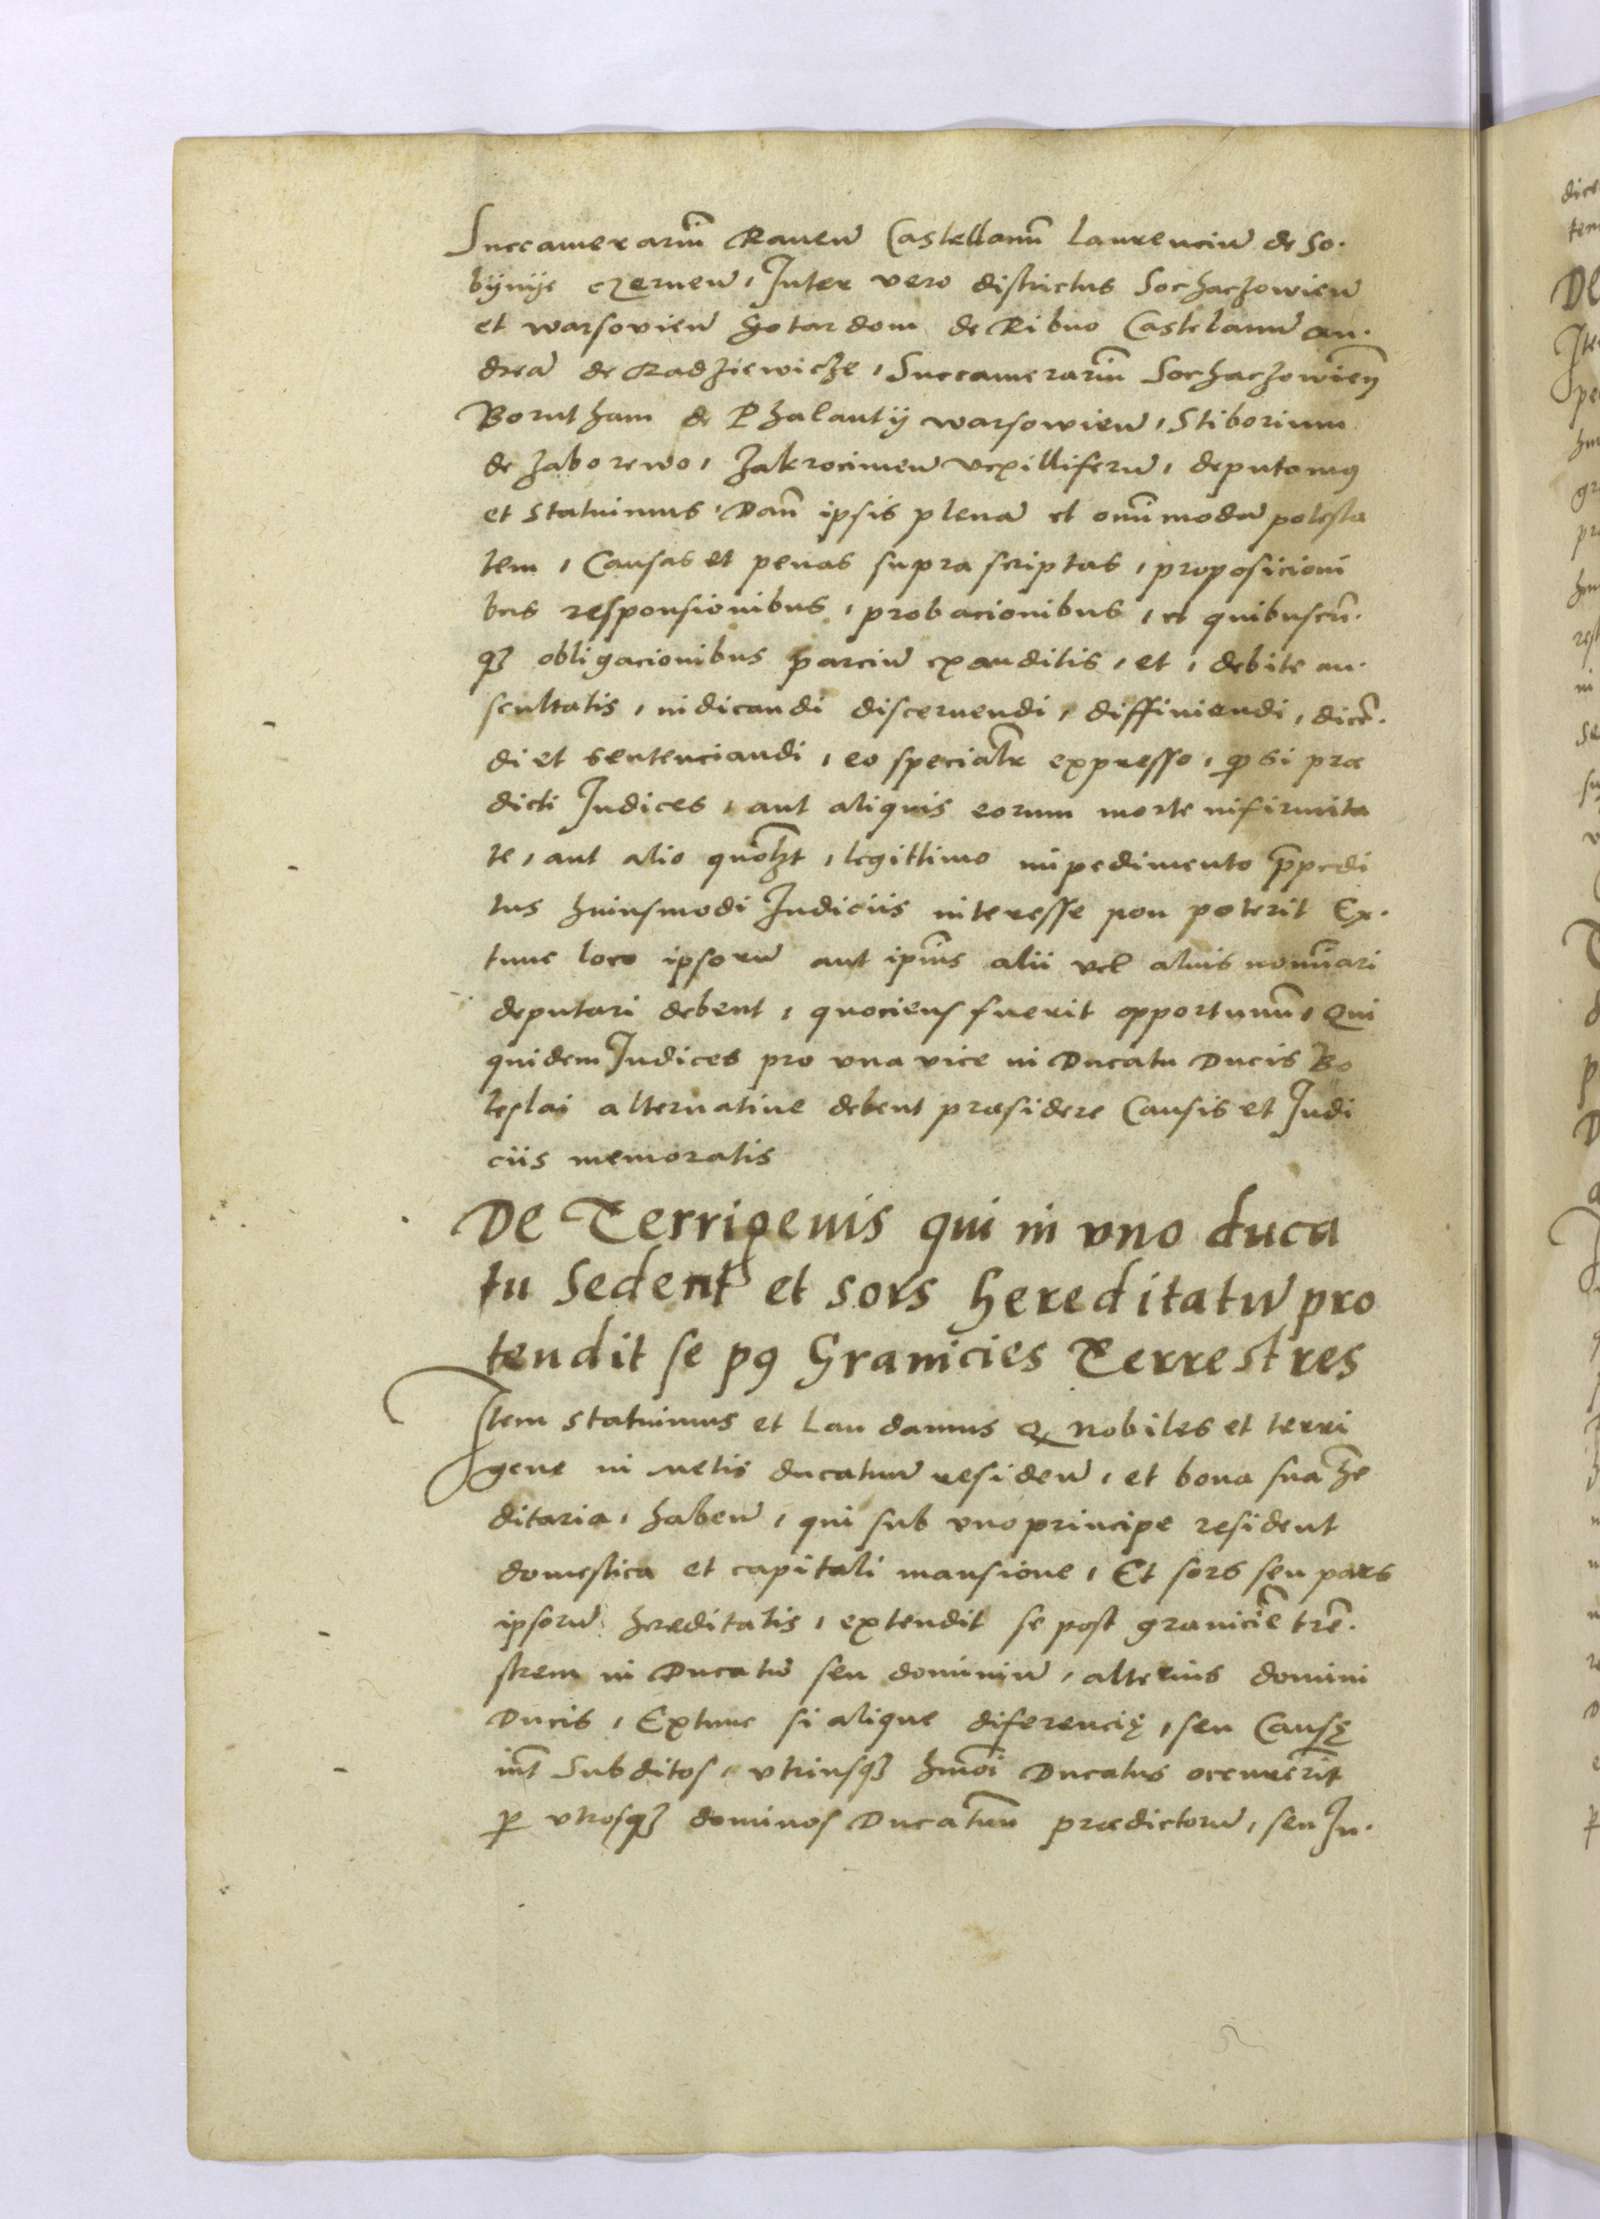 Succamerariũ Raueñ Castellanũ Laurenciũ de So.
bÿnÿe czerneñ, Inter vero districtus Sochaczowieñ
et warsovieñ Gotardom de Ribno Castelanũ an.
dreã de Radziewicze, Succamerariũ Sochaczowieñ
Borutham de Phalantÿ warsowieñ, Stiborium
de zaborewo, zakrocimeñ vexilliferũ, deputamꝰ
et Statuimus, Dañ ipsis plenã et omñimodã potesta
tem, Causas et penas supra scriptas, proposicioni
bus responsionibus, probacionibus, et quibuscũ.
qꝫ obligacionibus parciũ exauditis, et, debite au.
scultatis, iudicandi discernendi, diffiniendi, dicẽ.
di et sentenciandi, eo specialr̃ expresso, ꝙ si præ
dicti Iudices, aut aliquis eorum morte infirmita
te, aut alio quoħt, legittimo impedimento p̃pedi
tus huiusmodi Iudiciis interesse non poterit Ex.
tunc loco ipsorũ aut ip̃ius alii vel alius nomĩari
deputari debent, quociens fuerit opportunũ, Qui
quidem Iudices pro vna vice in Ducatu Ducis Bo
leslai alternatiue debent præsidere Causis et Iudi
ciis memoratis
De Terrigenis qui in vno duca
tu Sedent et sors hereditatũ pro
tendit se pꝰ Granicies Terrestres
Item statuimus et Laudamus Q Nobiles et terri
gene in metis ducatuũ resideñ, et bona sua he
ditaria, habeñ, qui sub vno principe resident
domestica et capitali mansione, Et sors seu pars
ipsorũ hereditatis, extendit se post graniciẽ tre.
strem in Ducatũ seu dominiũ, alterius domini
Ducis, Extunc si alique diferencię, seu Causę
int̃ Subditos, vtriusqꝫ hmõi Ducatus occurrerĩt
ꝑ vtrosqꝫ dominos Ducatuũ prædictorũ, seu Iu.